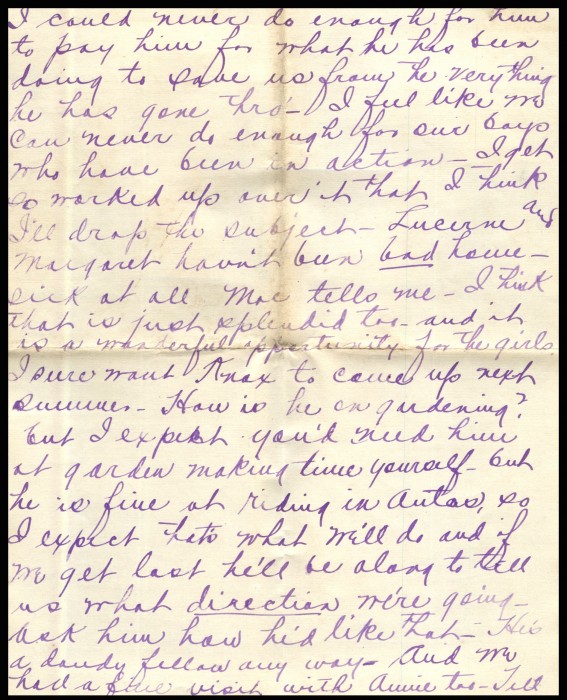 I could never do enough for him
to pay him for what he has been
doing to save us from the very thing
he has gone thro'- I feel like we
can never do enough for our boys
who have been in action - I get
so worked up over it that I think
I'll drop the subject - Lucerne and
Margaret havn't been bad home-
sick at all Mac tells me - I think
that is just splendid too - and it
is a wonderful opportunity for the girls.
I sure want Knox to come up next
summer - How is he on gardening?
but I expect you'd need him
at garden making time yourself - but
he is fine at riding in autos, so
I expect that's what we'll do and if
we get lost he'll be along to tell
us what direction we're going -
ask him how he'd like that - He's
a dandy fellow any way - And we
had a fine visit with Annie too - Tell